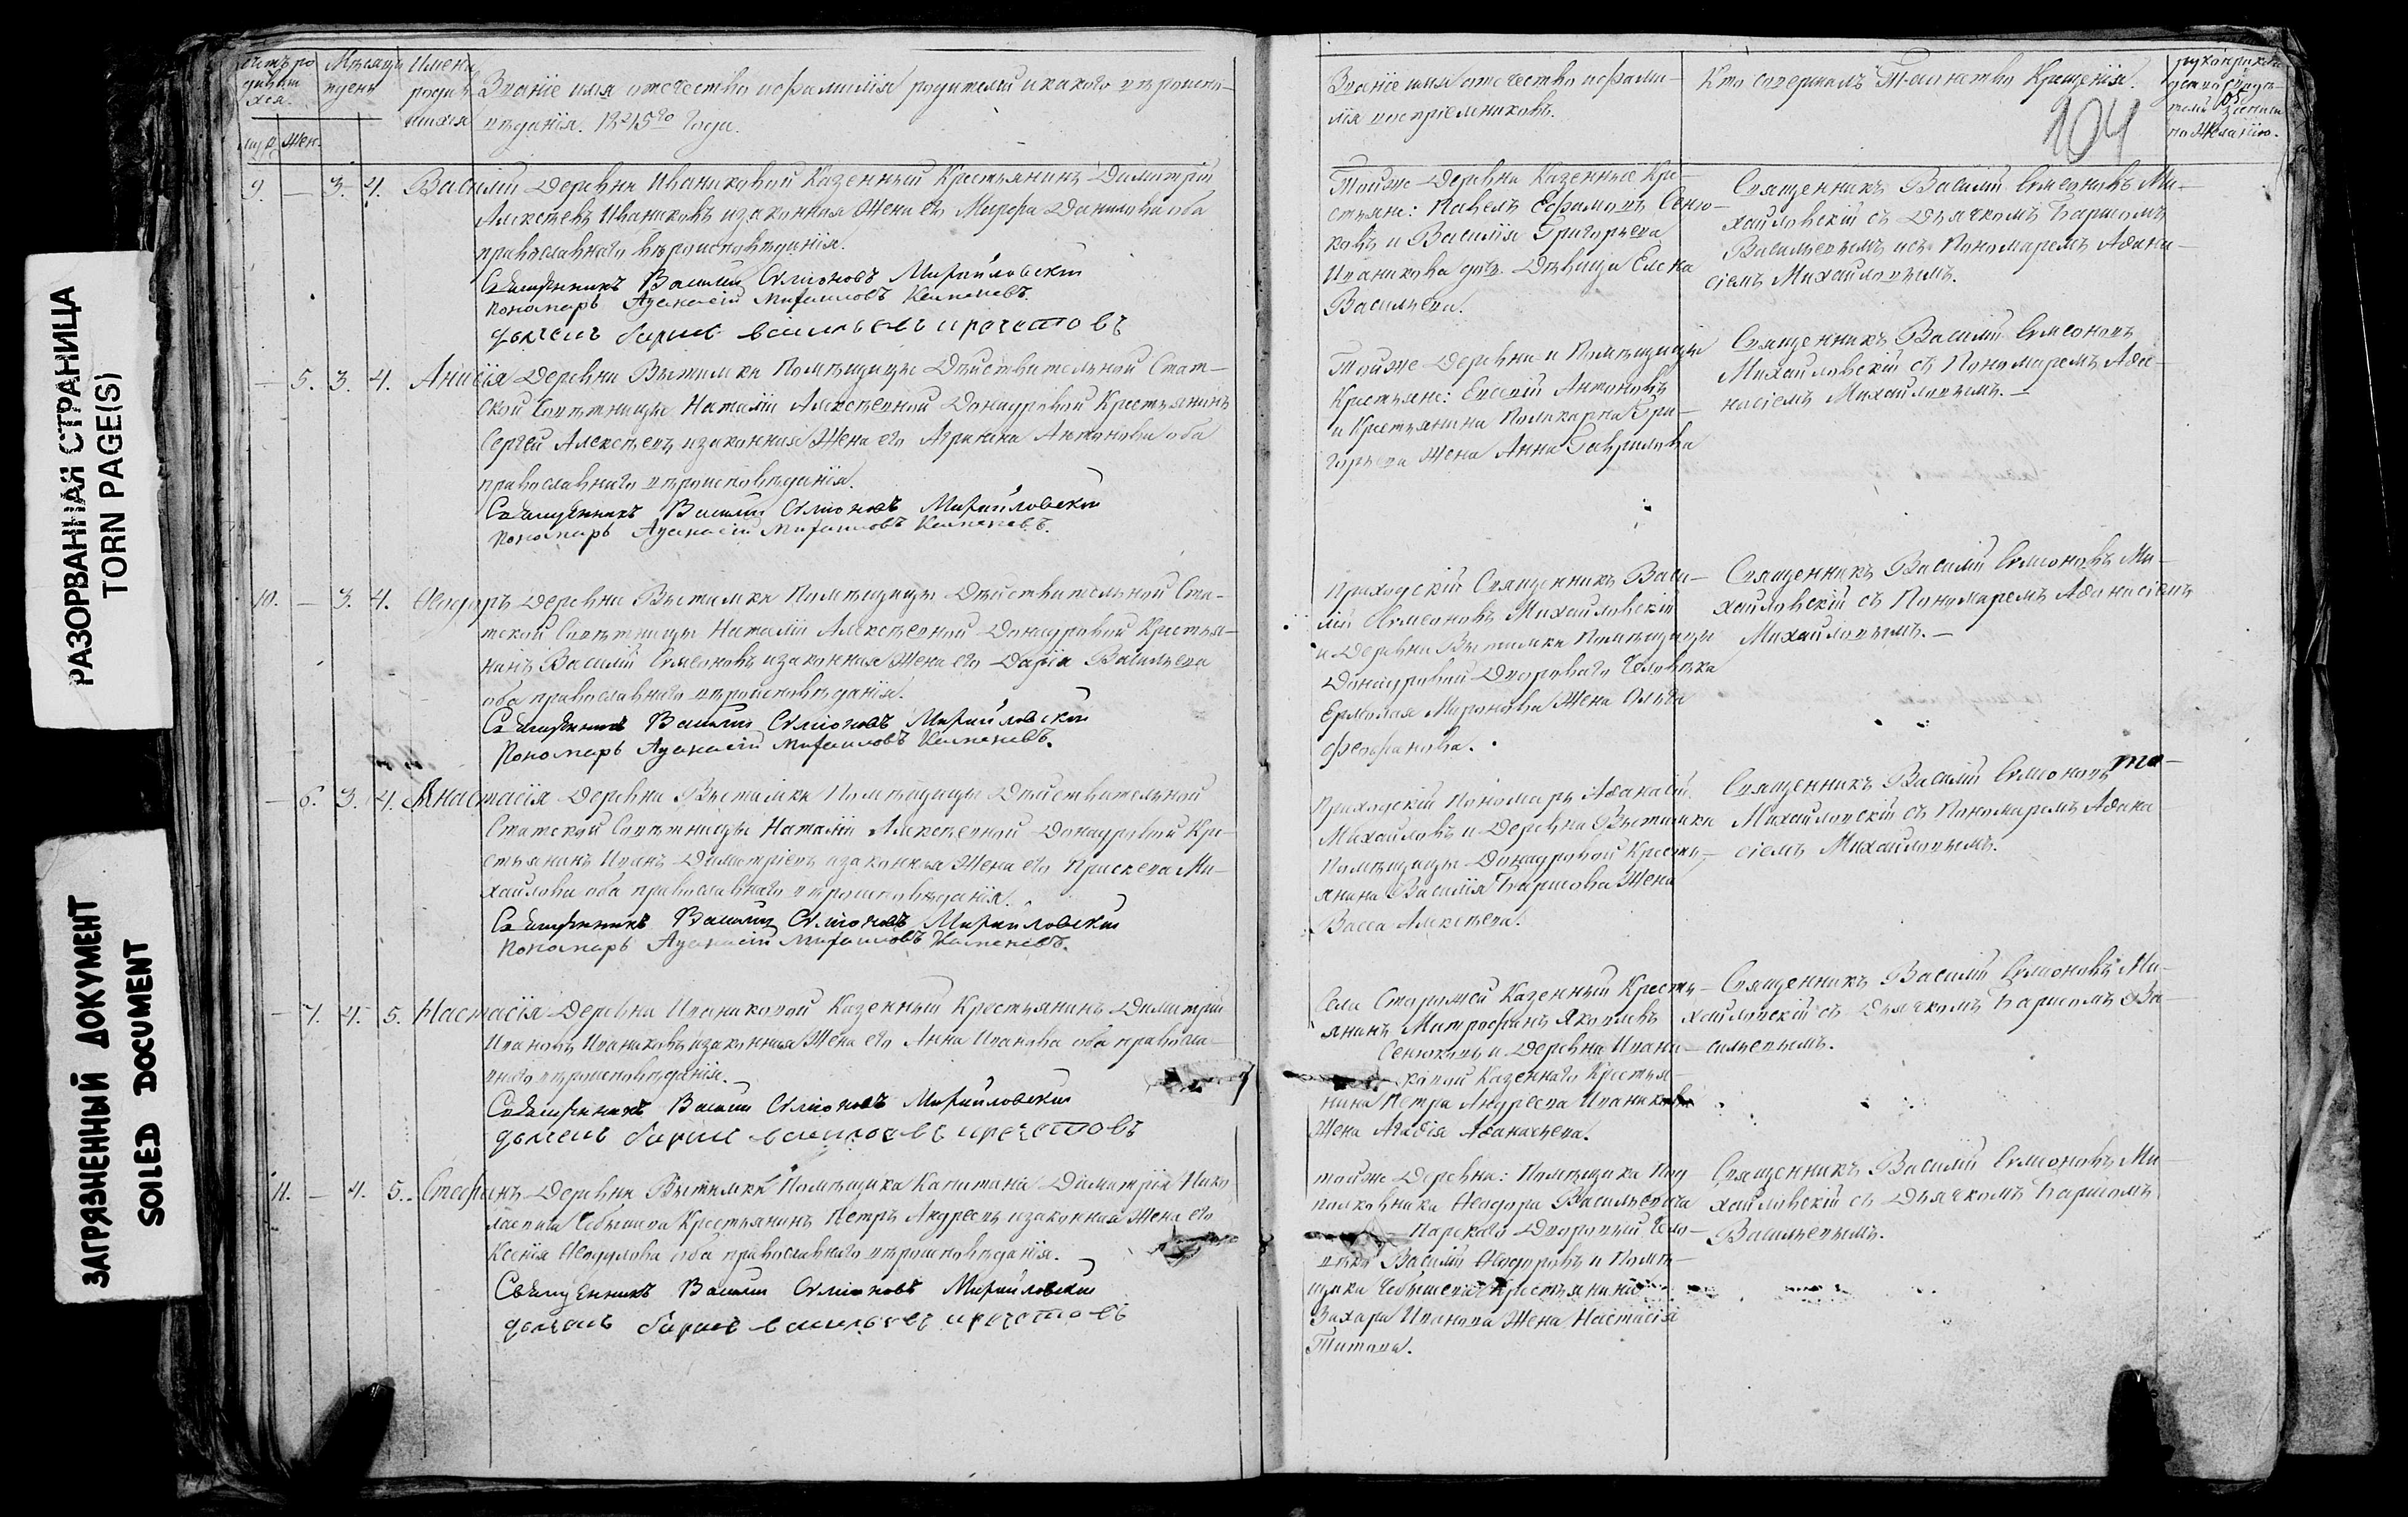 РАЗОРВАННАЯ СТРАНИЦА
TORN PAGE(S)
ЗАГРЯЗНЕННЫЙ ДОКУМЕНТ
SOILED DOCUMENT
Мѣсяцъ
и день
Имена
родив
шихся
Званіе имя отечество и фамилія родителей и какого вѣроиспо-
вѣданія. 1845го Года.
муж Жен.
9. — 3. 4. Василій Деревни Иваниковой Казенный Крестьянинъ Димитрій
Алексѣевъ Иваниковъ и законная Жена его Марфа Данилова оба
православнаго вѣроисповѣданія.
Священникъ Василій Симіоновъ Михайловскій
Пономарь Афанасій Михайловъ
дьячекъ борисъ васильевъ
— 5. 3. 4. Анисія Деревни Вытемки Помѣщицы Дѣйствительной Стат-
ской Совѣтницы Наталіи Алексѣевной Донауровой Крестьянинъ
Сергѣй Алексѣевъ и законная Жена его Агрипина Антонова оба
православнаго вѣроисповѣданія.
Священникъ Василій Симіоновъ Михайловскій
Пономарь Афанасій Михайловъ
10. — 3. 4. Ѳеодоръ Деревни Вытемки Помѣщицы Дѣйствительной Ста-
тской Совѣтницы Наталіи Алексѣевной Донауровой Крестья-
нинъ Василій Симеоновъ и законная Жена его Дарія Васильева
оба православнаго вѣроисповѣданія.
Священникъ Василій Симіоновъ Михайловскій
Пономарь Афанасій Михайловъ
— 6. 3. 4. Анастасія Деревни Вытемки Помѣщицы Дѣйствительной
Статской Совѣтницы Наталіи Алексѣевной Донауровой Кре-
стьянинъ Иванъ Димитріевъ и законная Жена его Прасковa Ми-
хайлова оба православнаго вѣроисповѣданія.
Священникъ Василій Симіоновъ Михайловскій
Пономарь Афанасій Михайловъ
— 7. 4. 5. Настасія Деревни Иваниковой Казенный Крестьянинъ Димитрій
Ивановъ Иваниковъ и законная Жена его Анна Иванова оба правосла-
внаго вѣроисповѣданія.
Священникъ Василій Симіоновъ Михайловскій
дьячекъ борисъ васильевъ
11. — 4. 5. Стефанъ Деревни Вытемки Помѣщика Капитана Димитрія Нико
лаевича Чебышева Крестьянинъ Петръ Андреевъ и законная Жена его
Ксенія Ѳеодулова оба православнаго вѣроисповѣданія.
Священникъ Василій Симіоновъ Михайловскій
дьячекъ борисъ васильевъ
Званіе имя отечество и фами-
лія воспріемниковъ.
Кто совершалъ Таинство Крещенія.
104
по Желанію.
Тойже Деревни Казенные Кре-
стьяне: Павелъ Ефимовъ Сеню-
ковъ и Василія Григорьева
Иваникова дочь Дѣвица Елена
Васильева.
Священникъ Василій Симеоновъ Ми-
хайловскій съ Дьячкомъ Барисомъ
Васильевымъ и съ Пономаремъ Афана-
сіемъ Михайловымъ.
Тойже Деревни и Помѣщицы
Крестьяне: Евсевій Антоновъ
и Крестьянина Поликарпа Гри-
горьева Жена Анна Гаврилова
Священникъ Василій Симеоновъ
Михайловскій съ Пономаремъ Афа-
насіемъ Михайловымъ. —
Приходскій Священникъ Васи-
лій Симеоновъ Михайловскій
и Деревни Вытемки Помѣщицы
Донауровой Двороваго Человѣка
Ермолая Миронова Жена Ольга
Феофанова.
Священникъ Василій Симеоновъ Ми-
хайловскій съ Пономаремъ Афанасіемъ
Михайловымъ. —
Приходскій Пономарь Афанасій
Михайловъ и Деревни Вытемки
Помѣщицы Донауровой Кресть-
янина Василія Барисова Жена
Васса Алексѣева.
Священникъ Василій Симеоновъ
Михайловскій съ Пономаремъ Афана
сіемъ Михайловымъ.
Села Старожей Казенный Кресть-
янинъ Митрофанъ Яковлевъ
Сенюковъ и Деревни Ивани-
ковой Казеннаго Крестья-
нина Петра Андреева Иваникова
Жена Агафія Афанасьева.
Священникъ Василій Симеоновъ Ми-
хайловскій съ Дьячкомъ Барисомъ Ва-
сильевымъ.
тойже Деревни: Помѣщика Под
полковника Ѳеодора Васильевича
Нарскаго Дворовый Чело-
вѣкъ Василій Ѳеодоровъ и Помѣ-
щика Чебышева Крестьянина
Захара Иванова Жена Настасія
Титова.
Священникъ Василій Симеоновъ Ми-
хайловскій съ Дьячкомъ Барисомъ
Васильевымъ.